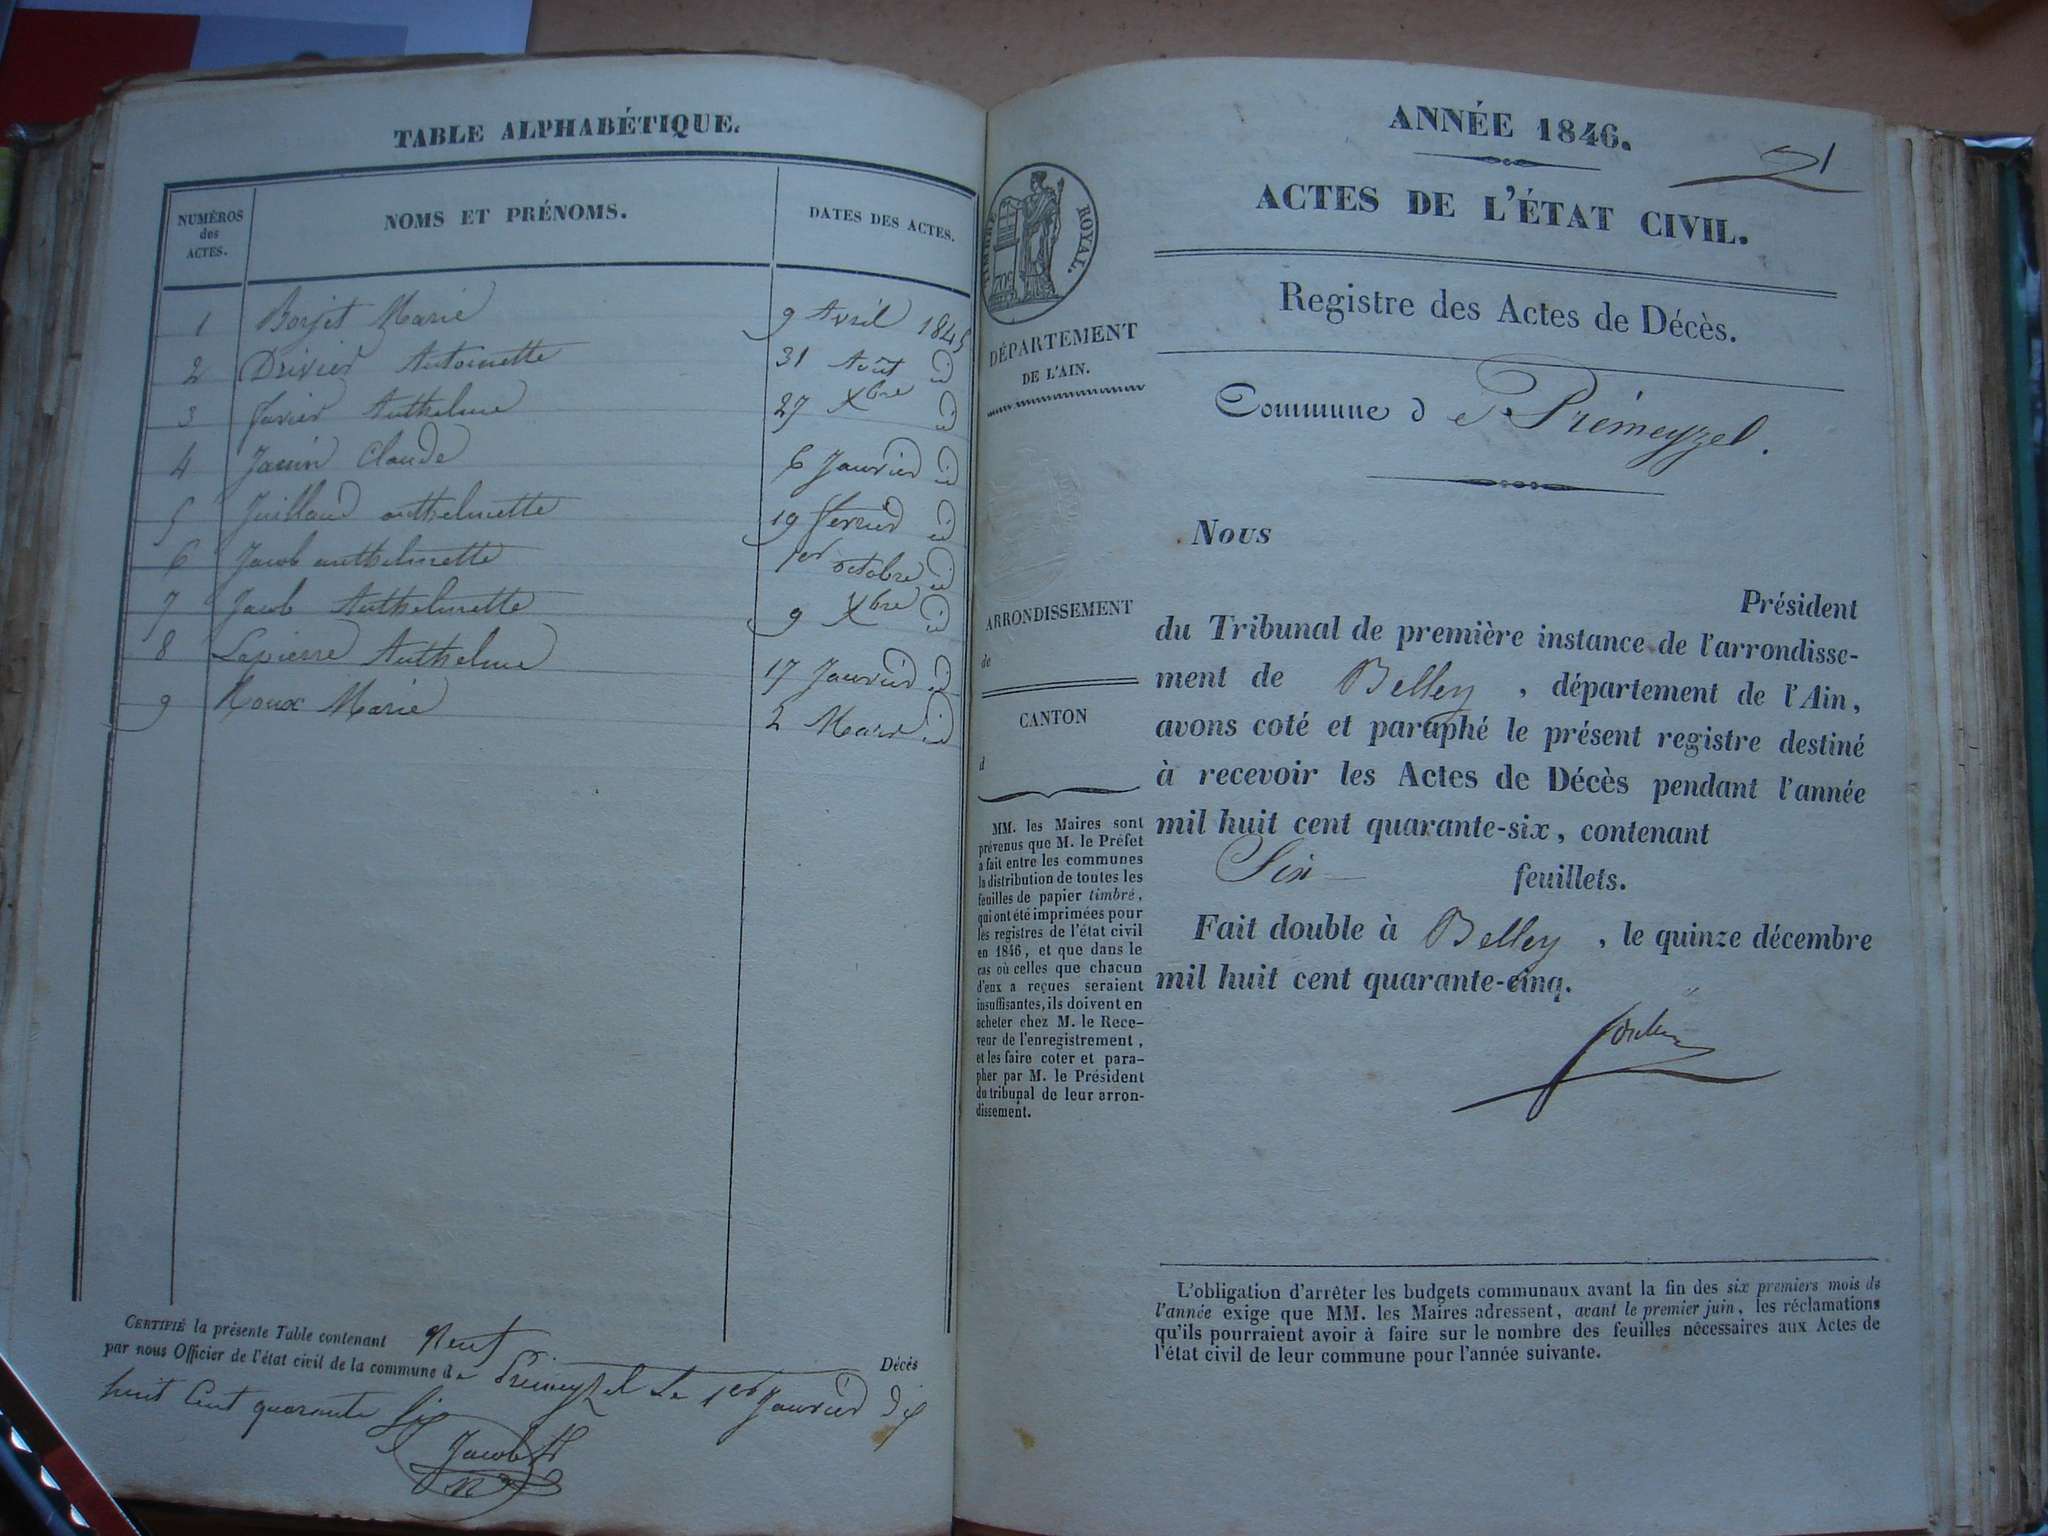 TABLE ALPHABÉTIQUE.
NUMÉROS des ACTES.
NOMS ET PRÉNOMS.
DATES DES ACTES.
1 Borjet Marie 9 Avril 1845
2 Drivier Antoinette 31 Août id
3 Javier Anthelme 27 Xbre id
4 Janin Claude 6 Janvier id
5 Juilland anthelmette 19 fevrier id
6 Jacob anthelmette 1er octobre id
7 Jacob Anthelmette 9 Xbre id
8 Lapierre Anthelme 17 Janvier id
9 Roux Marie 2 Mars id
CERTIFIÉ la présente Table contenant Neuf Décès
par nous Officier de l'état civil de la commune de Prémeyzel Le 1er Janvier dix
huit Cent quarante Six
Jacob
ANNÉE 1846.
1
ACTES DE L'ÉTAT CIVIL.
TIMBRE ROYAL.
Registre des Actes de Décès.
DÉPARTEMENT
DE L'AIN.
Commune de Prémeyzel.
Nous
Président
du Tribunal de première instance de l'arrondisse-
ment de Belley, département de l'Ain,
avons coté et paraphé le présent registre destiné
à recevoir les Actes de Décès pendant l'année
mil huit cent quarante-six, contenant
Six feuillets.
Fait double à Belley, le quinze décembre
mil huit cent quarante-cinq.
ARRONDISSEMENT
de
CANTON
d
MM. les Maires sont
prévenus que M. le Préfet
a fait entre les communes
la distribution de toutes les
feuilles de papier timbré,
qui ont été imprimées pour
les registres de l'état civil
en 1846, et que dans le
cas où celles que chacun
d'eux a reçues seraient
insuffisantes, ils doivent en
acheter chez M. le Rece-
veur de l'enregistrement,
et les faire coter et para-
pher par M. le Président
du tribunal de leur arron-
dissement.
L'obligation d'arrêter les budgets communaux avant la fin des six premiers mois de
l'année exige que MM. les Maires adressent, avant le premier juin, les réclamations
qu'ils pourraient avoir à faire sur le nombre des feuilles nécessaires aux Actes de
l'état civil de leur commune pour l'année suivante.